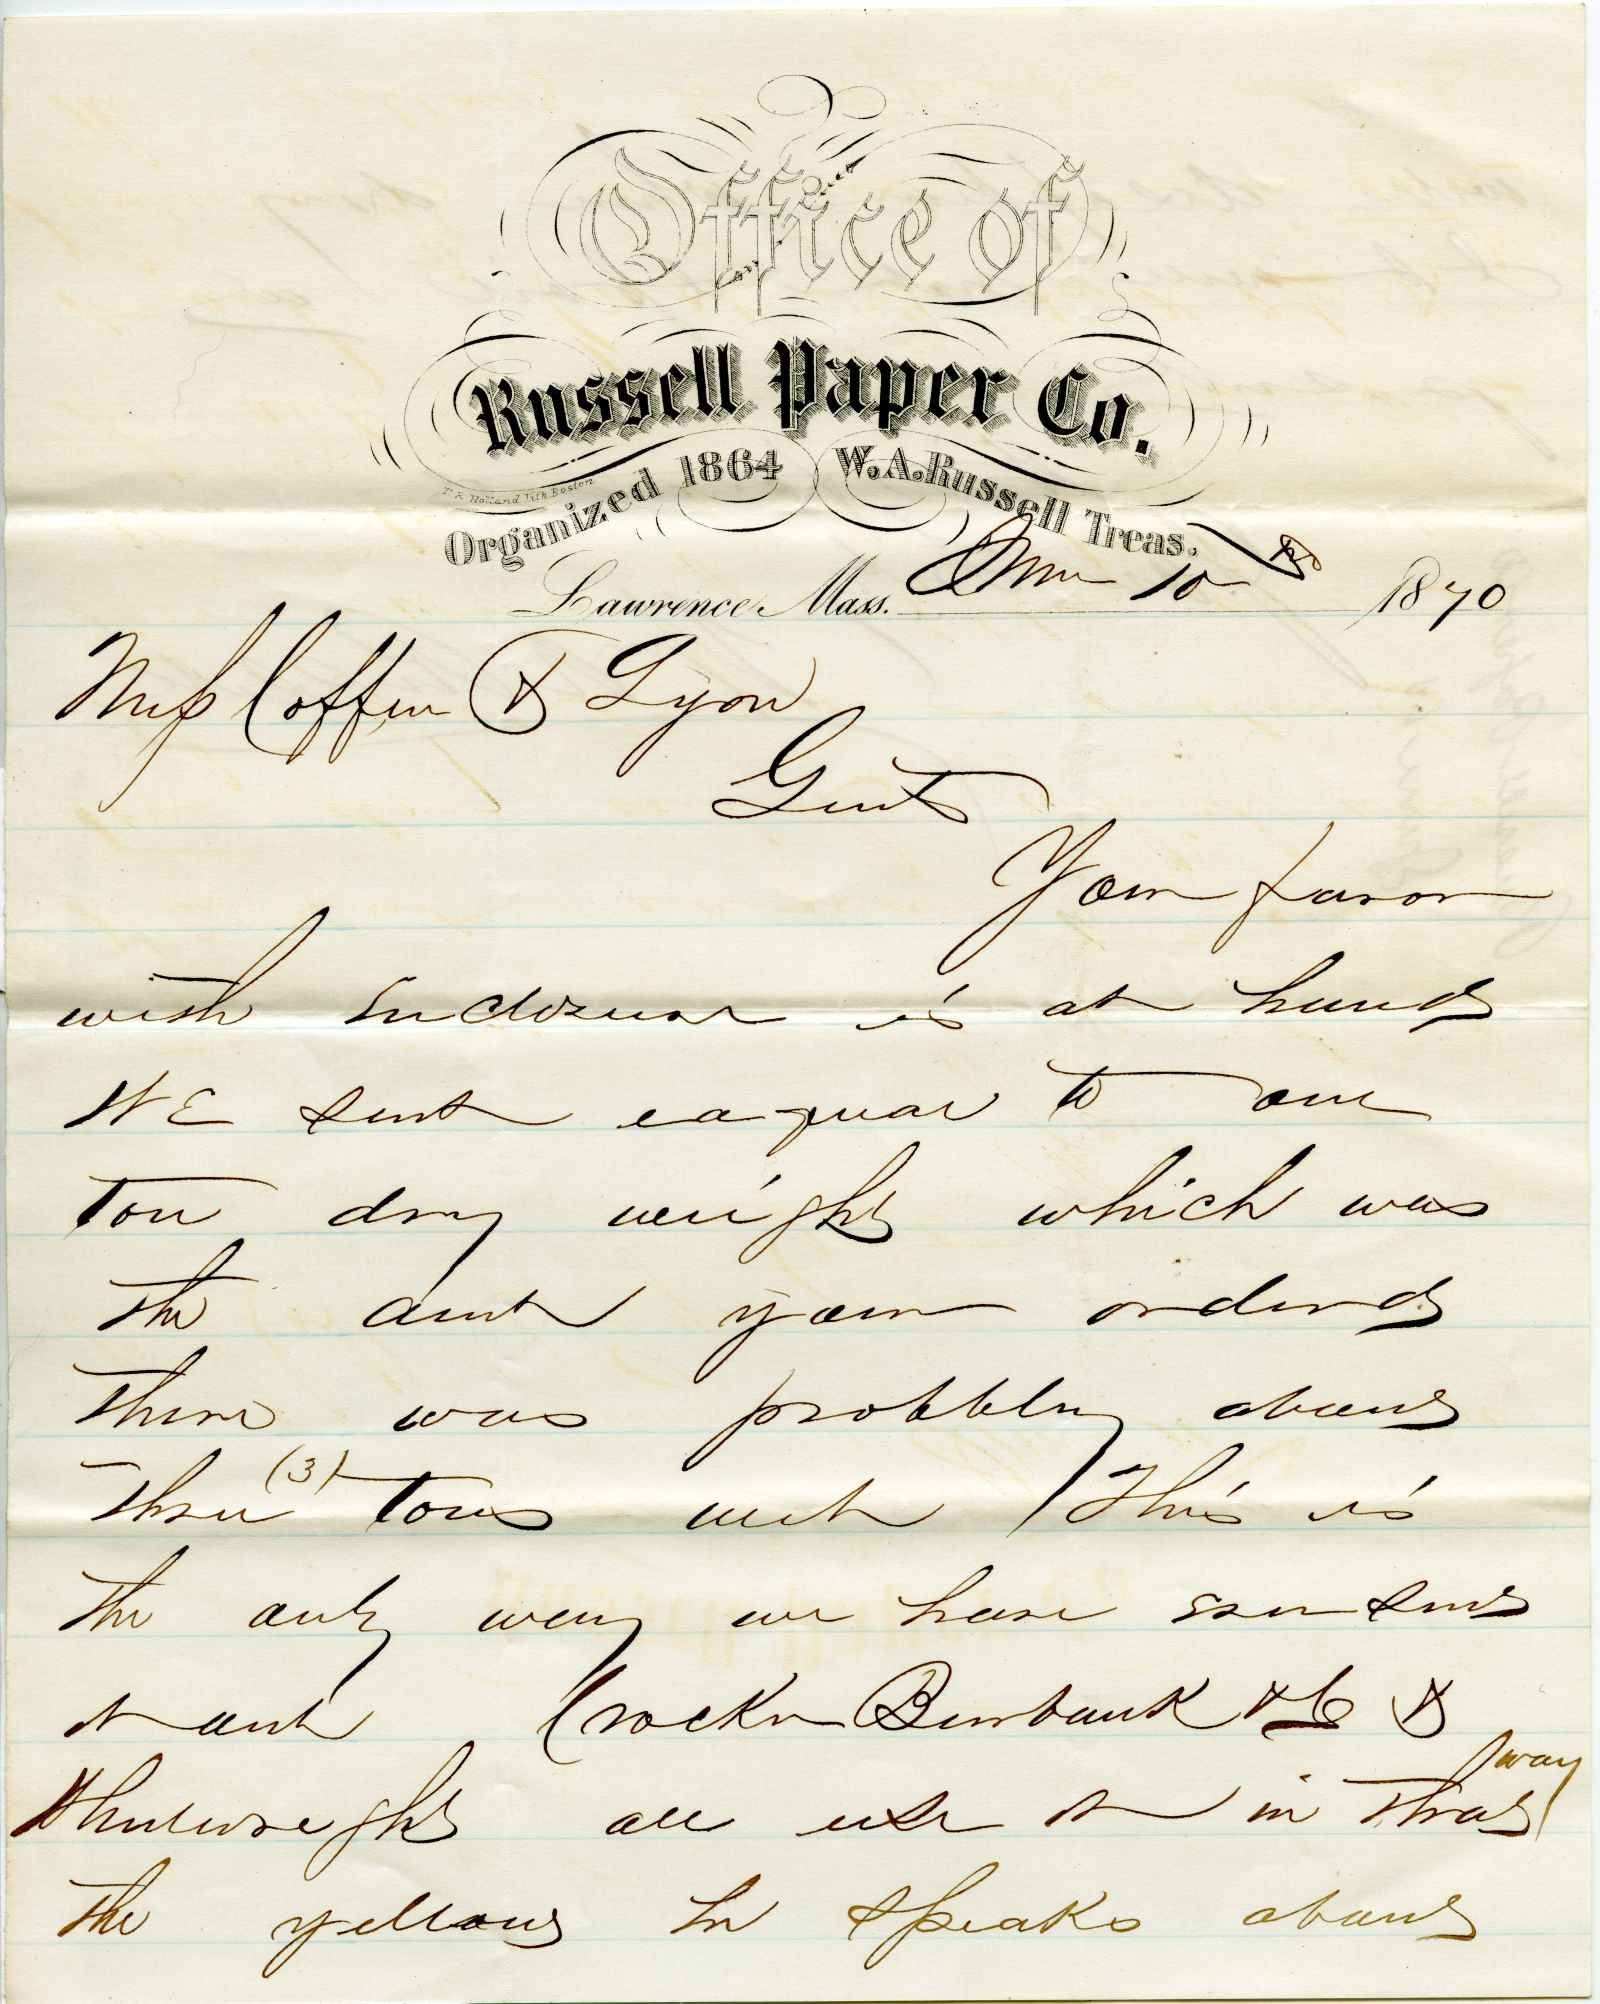 Office of
Russell Paper Co.
Organized 1864 W. A. Russell Treas.
Lawrence, Mass. 10 1870
Mess Coffin & Lyon
Gents
Your favor
with enclosure is at hand
We sent eaqual to one
ton dry weight which was
the amt your orderd
There was probbly about
Three (3) tons wet This is
the only way we have ever sent
it and Crocker Burbank & Co &
all use it in that way
the yellow he speaks about